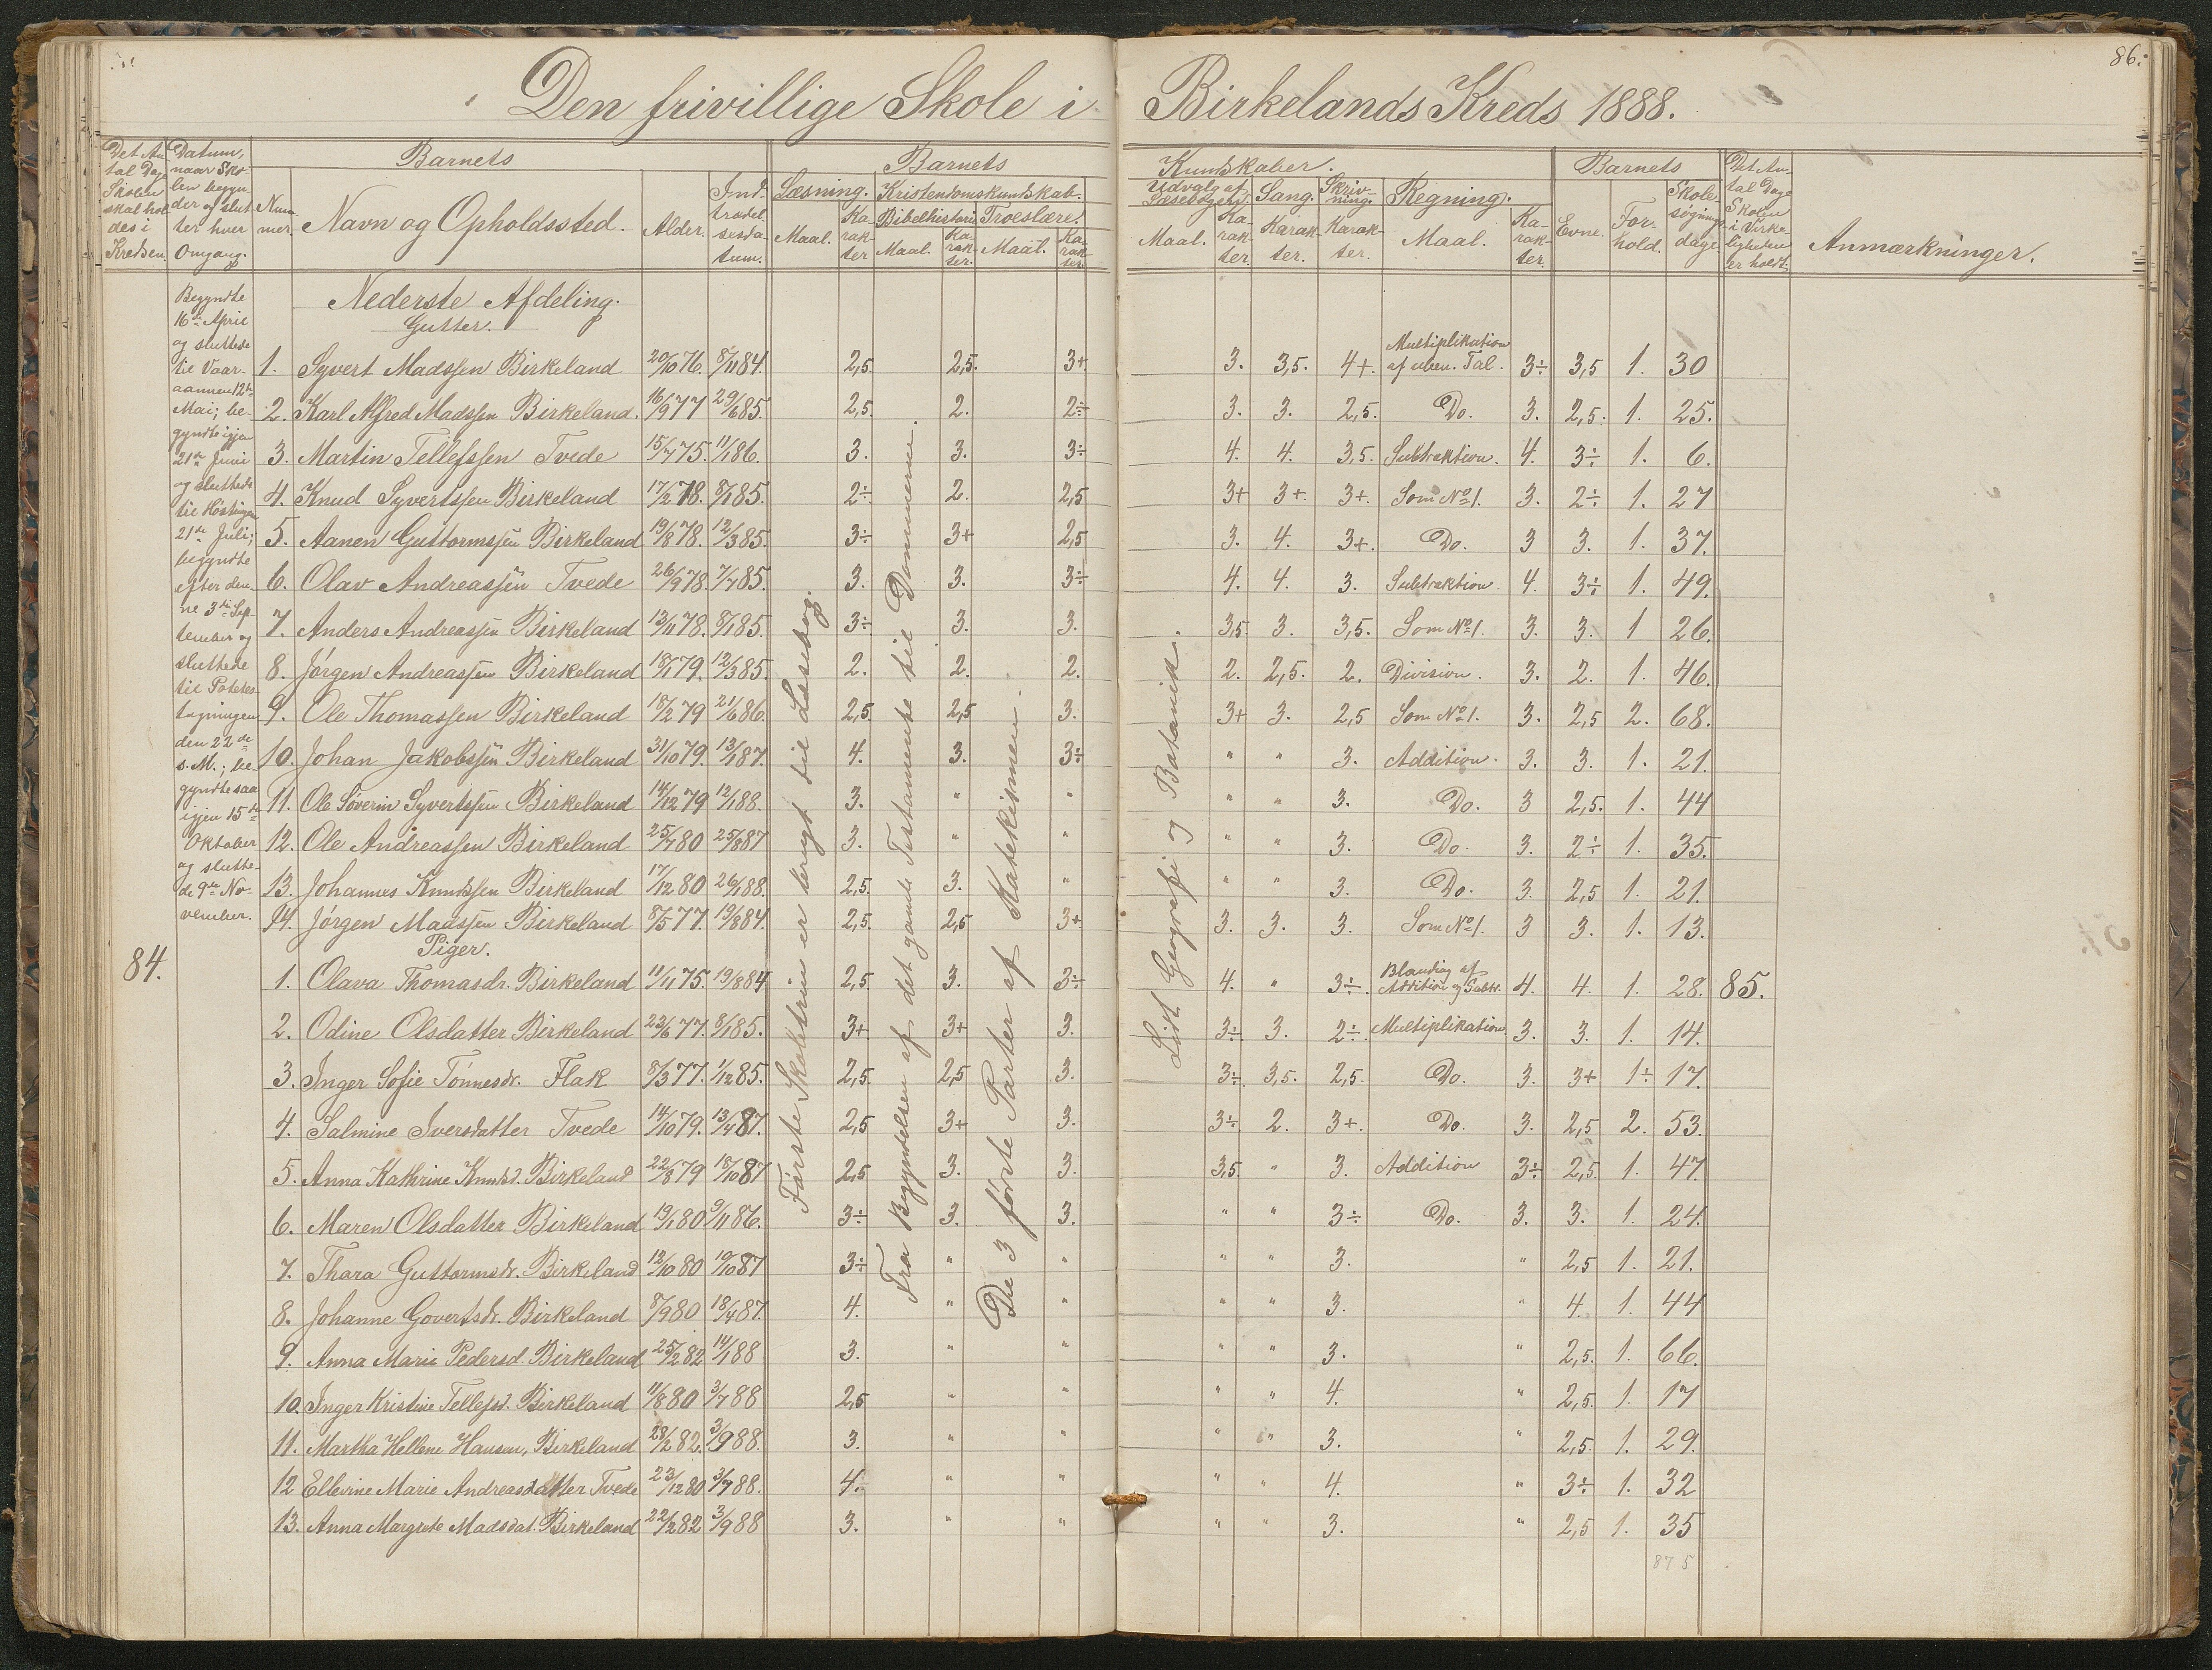 86.
Den frivillige Skole i Birkelands Kreds 1888.
Det Antal Dage Skolen skal holdes i Kredsen.
Datum, naar Skolen begynder og slutter hver Omgang.
Barnets
Nummer.
Navn og Opholdssted.
Alder.
Indtrædelsesdatum.
Barnets
Kundskaber.
Læsning.
Maal.
Karakter
Kristendomskundskab.
Bibelhistorie
Maal.
Karakter.
Troeslære.
Maal.
Karakter.
Udvalg af Læsebogen.
Maal.
Karakter.
Sang.
Karakter.
Skrivning.
Karakter.
Regning.
Maal.
Karakter.
Barnets
Evne.
Forhold.
Skolesøgningsdage.
Det Antal Dage Skolen i Virkeligheden er holdt.
Anmærkninger.
Begyndte
16de April
og sluttede
til Vaar-
aannen 12te
Mai; be-
gyndte igjen
21de Juni
og sluttede
til Høstingen
21de Juli;
begyndte
efter den-
ne 3die Sep-
tember og
sluttede
til Potetes-
tagningen
den 22de
s. M.; be-
gyndte saa
igjen 15de
Oktober
og slutte-
de 9de No-
vember.
84.
Nederste Afdeling.
Gutter.
1. Syvert Madssen Birkeland 20/10 76. 8/11 84. 2,5. 2,5. 3+ 3. 3,5. 4+. Multiplikation af uben. Tal. 3÷ 3,5 1. 30
2. Karl Alfred Madssen Birkeland. 16/9 77 29/6 85. 2,5. 2. 2÷ 3. 3. 2,5. Do. 3. 2,5. 1. 25.
3. Martin Tellefssen Tvede 15/7 75. 11/1 86. 3. 3. 3÷ 4. 4. 3,5. Subtraktion. 4. 3÷ 1. 6.
4. Knud Syvertssen Birkeland 17/2 78. 8/1 85. 2÷ 2. 2,5 3+ 3+. 3+. Som No 1. 3. 2÷ 1. 27
5. Aanen Guttormssen Birkeland 19/8 78. 12/3 85. 3÷ 3+ 2,5 3. 4. 3+. Do. 3 3. 1. 37.
6. Olav Andreassen Tvede 26/9 78. 7/7 85. 3. 3. 3÷ 4. 4. 3. Subtraktion. 4. 3÷ 1. 49.
7. Anders Andreassen Birkeland 13/11 78. 8/1 85. 3÷ 3. 3. 3,5 3. 3,5. Som No 1. 3. 3. 1 26.
8. Jørgen Andreassen Birkeland 18/1 79. 12/3 85. 2. 2. 2. 2. 2,5. 2. Division. 3. 2. 1. 46.
9. Ole Thomassen Birkeland 18/2 79 21/6 86. 2,5 2,5 3. 3+ 3. 2,5 Som No 1. 3. 2,5 2. 68.
10. Johan Jakobssen Birkeland 31/10 79. 13/1 87. 4. 3. 3÷ " " 3. Addition. 3. 3. 1. 21.
11. Ole Søverin Syvertssen Birkeland 14/12 79 12/1 88. 3. " " " " 3. Do. 3 2,5. 1. 44
12. Ole Andreassen Birkeland 25/7 80 25/8 87 3. " " " " 3. Do. 3. 2÷ 1. 35.
13. Johannes Knudssen Birkeland 17/12 80 26/1 88. 2,5. 3. " " " 3. Do. 3. 2,5 1. 21.
14. Jørgen Madssen Birkeland 8/5 77. 19/8 84. 2,5. 2,5 3+ 3. 3. 3. Som No 1. 3 3. 1. 13.
Piger.
1. Olava Thomasdr. Birkeland 11/11 75. 19/8 84 2,5 3. 3÷ 4. " 3÷. Blanding af Addition og Subtr. 4. 4. 1. 28. 85.
2. Odine Olsdatter Birkeland 23/6 77. 8/1 85. 3+ 3+ 3. 3÷ 3. 2÷. Multiplikation 3. 3. 1. 14.
3. Inger Sofie Tønnesdr. Flak 8/3 77. 1/12 85. 2,5. 2,5 3. 3÷ 3,5. 2,5. Do. 3. 3+ 1÷ 17.
4. Salmine Iversdatter Tvede 14/10 79. 13/4 87. 2,5 3+ 3. 3÷ 2. 3+. Do. 3. 2,5 2. 53.
5. Anna Kathrine Knudsd. Birkeland 22/8 79 18/10 87 2,5 3. 3. 3,5. " 3. Addition 3÷ 2,5. 1. 47.
6. Maren Olsdatter Birkeland 19/1 80 9/11 86. 3÷ 3. 3. " " 3÷ Do. 3. 3. 1. 24.
7. Thara Guttormsdr. Birkeland 12/10 80 19/10 87 3÷ " " " " 3. " 2,5 1. 21.
8. Johanne Govertsdr. Birkeland 8/9 80 18/4 87. 4. " " " " 3. " 4. 1. 44
9. Anna Marie Pedersd. Birkeland 25/2 82 14/1 88 3. " " " " 3. " 2,5. 1. 66.
10. Inger Kristine Tellefsd. Birkeland 11/8 80 3/7 88 2,5 " " " " 4. " 2,5. 1. 17
11. Martha Hellene Hansen, Birkeland 28/2 82. 3/9 88. 3. " " " " 3. " 2,5. 1. 29.
12 Ellevine Marie Andreasdatter Tvede 23/12 80 3/7 88. 4. " " " " 4. " 3÷ 1. 32
13. Anna Margrete Madsdat. Birkeland 22/2 82 3/9 88 3. " " " " 3. " 2,5 1. 35
875
Første Skoletrin er brugt til Læsebog.
Fra Begyndelsen af det gamle Testamente til Dommerne.
De 3 første Parter af Katekismen.
Lidt Geografi og Botanik.